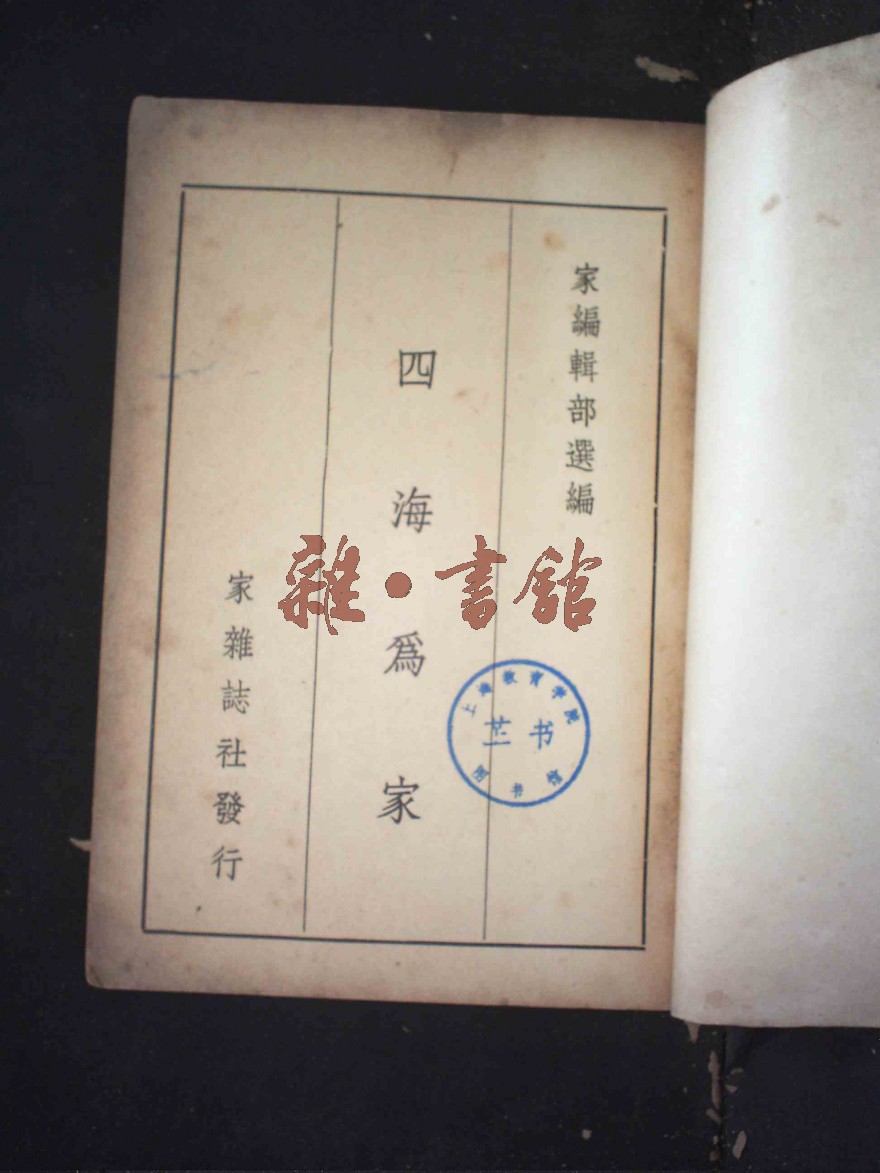 家編輯部選編
四海爲家
家雜誌社發行
雜·書館
上海教育学院
芷书
图书馆